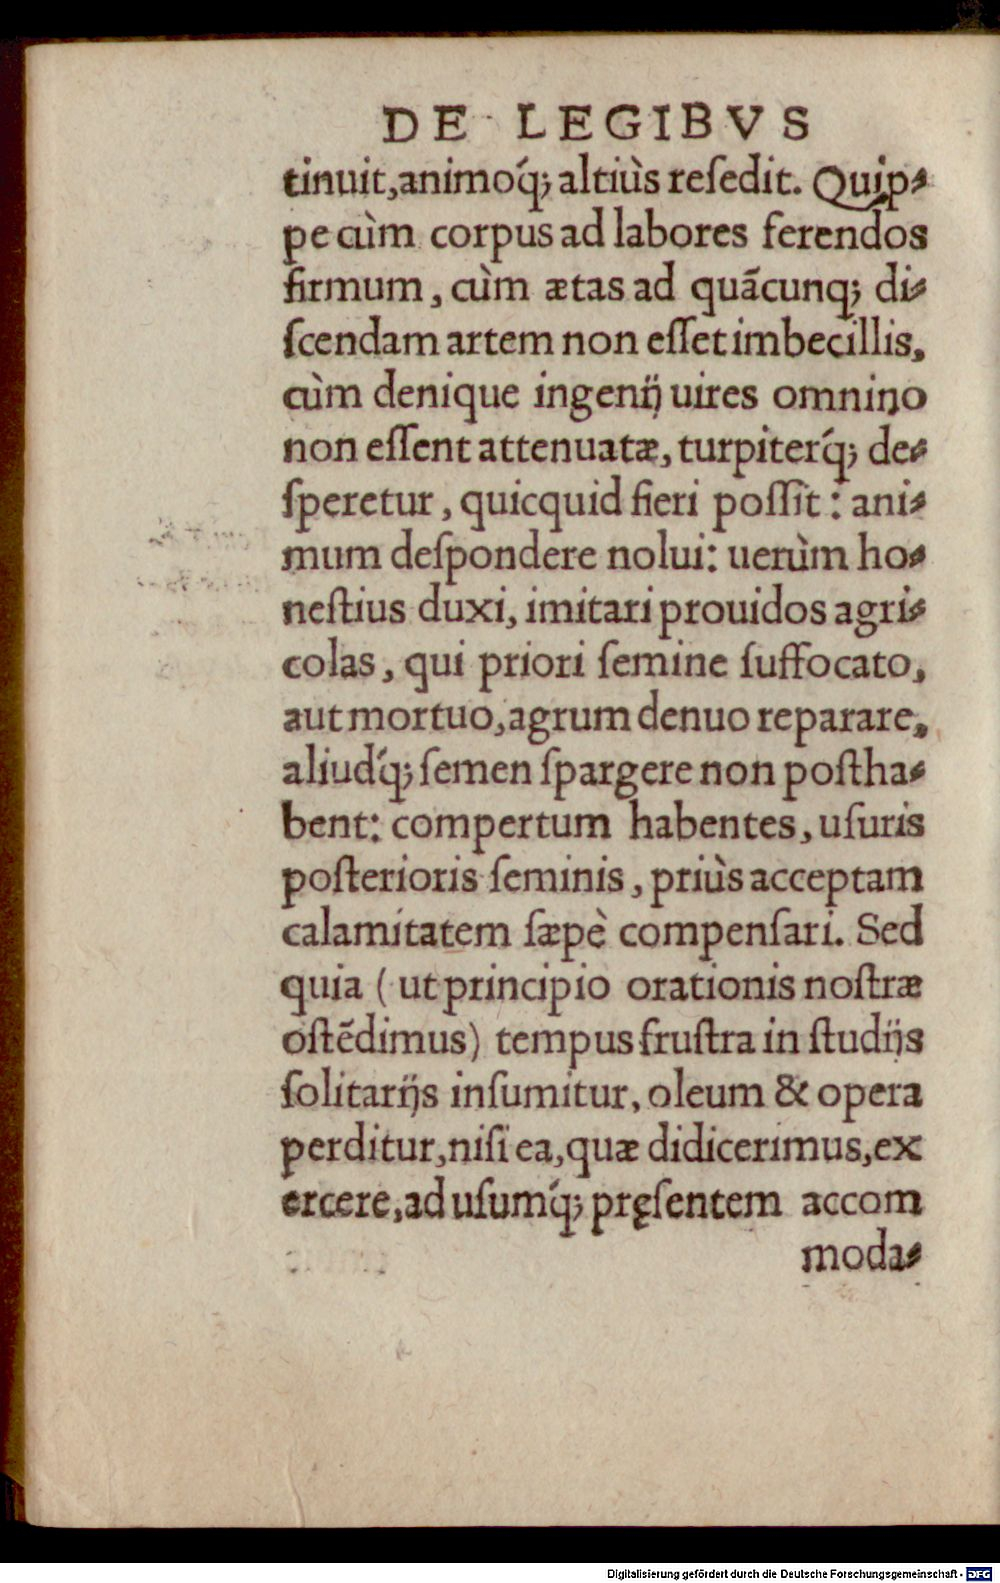 DE LEGIBVS
tinuit, animoq́; altiùs reſedit. Quip-
pe cùm corpus ad labores ferendos
firmum, cùm ætas ad quãcunq; di-
ſcendam artem non eſſet imbecillis,
cùm denique ingenij uires omnino
non eſſent attenuatæ, turpiterq́; de-
ſperetur, quicquid fieri poſſit: ani-
mum deſpondere nolui: uerùm ho-
neſtius duxi, imitari prouidos agri-
colas, qui priori ſemine ſuffocato,
aut mortuo, agrum denuo reparare,
aliudq́; ſemen ſpargere non poſtha-
bent: compertum habentes, uſuris
poſterioris ſeminis, priùs acceptam
calamitatem ſæpè compenſari. Sed
quia (ut principio orationis noſtræ
oſtẽdimus) tempus fruſtra in ſtudijs
ſolitarijs inſumitur, oleum & opera
perditur, niſi ea, quæ didicerimus, ex
ercere, ad uſumq́; pręſentem accom
moda-
Digitalisierung gefördert durch die Deutsche Forschungsgemeinschaft - DFG